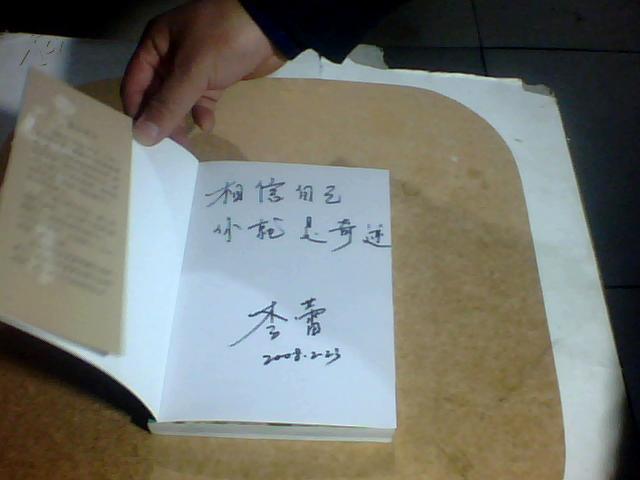 相信自己
你就是奇迹
李蕾
2008.2.23